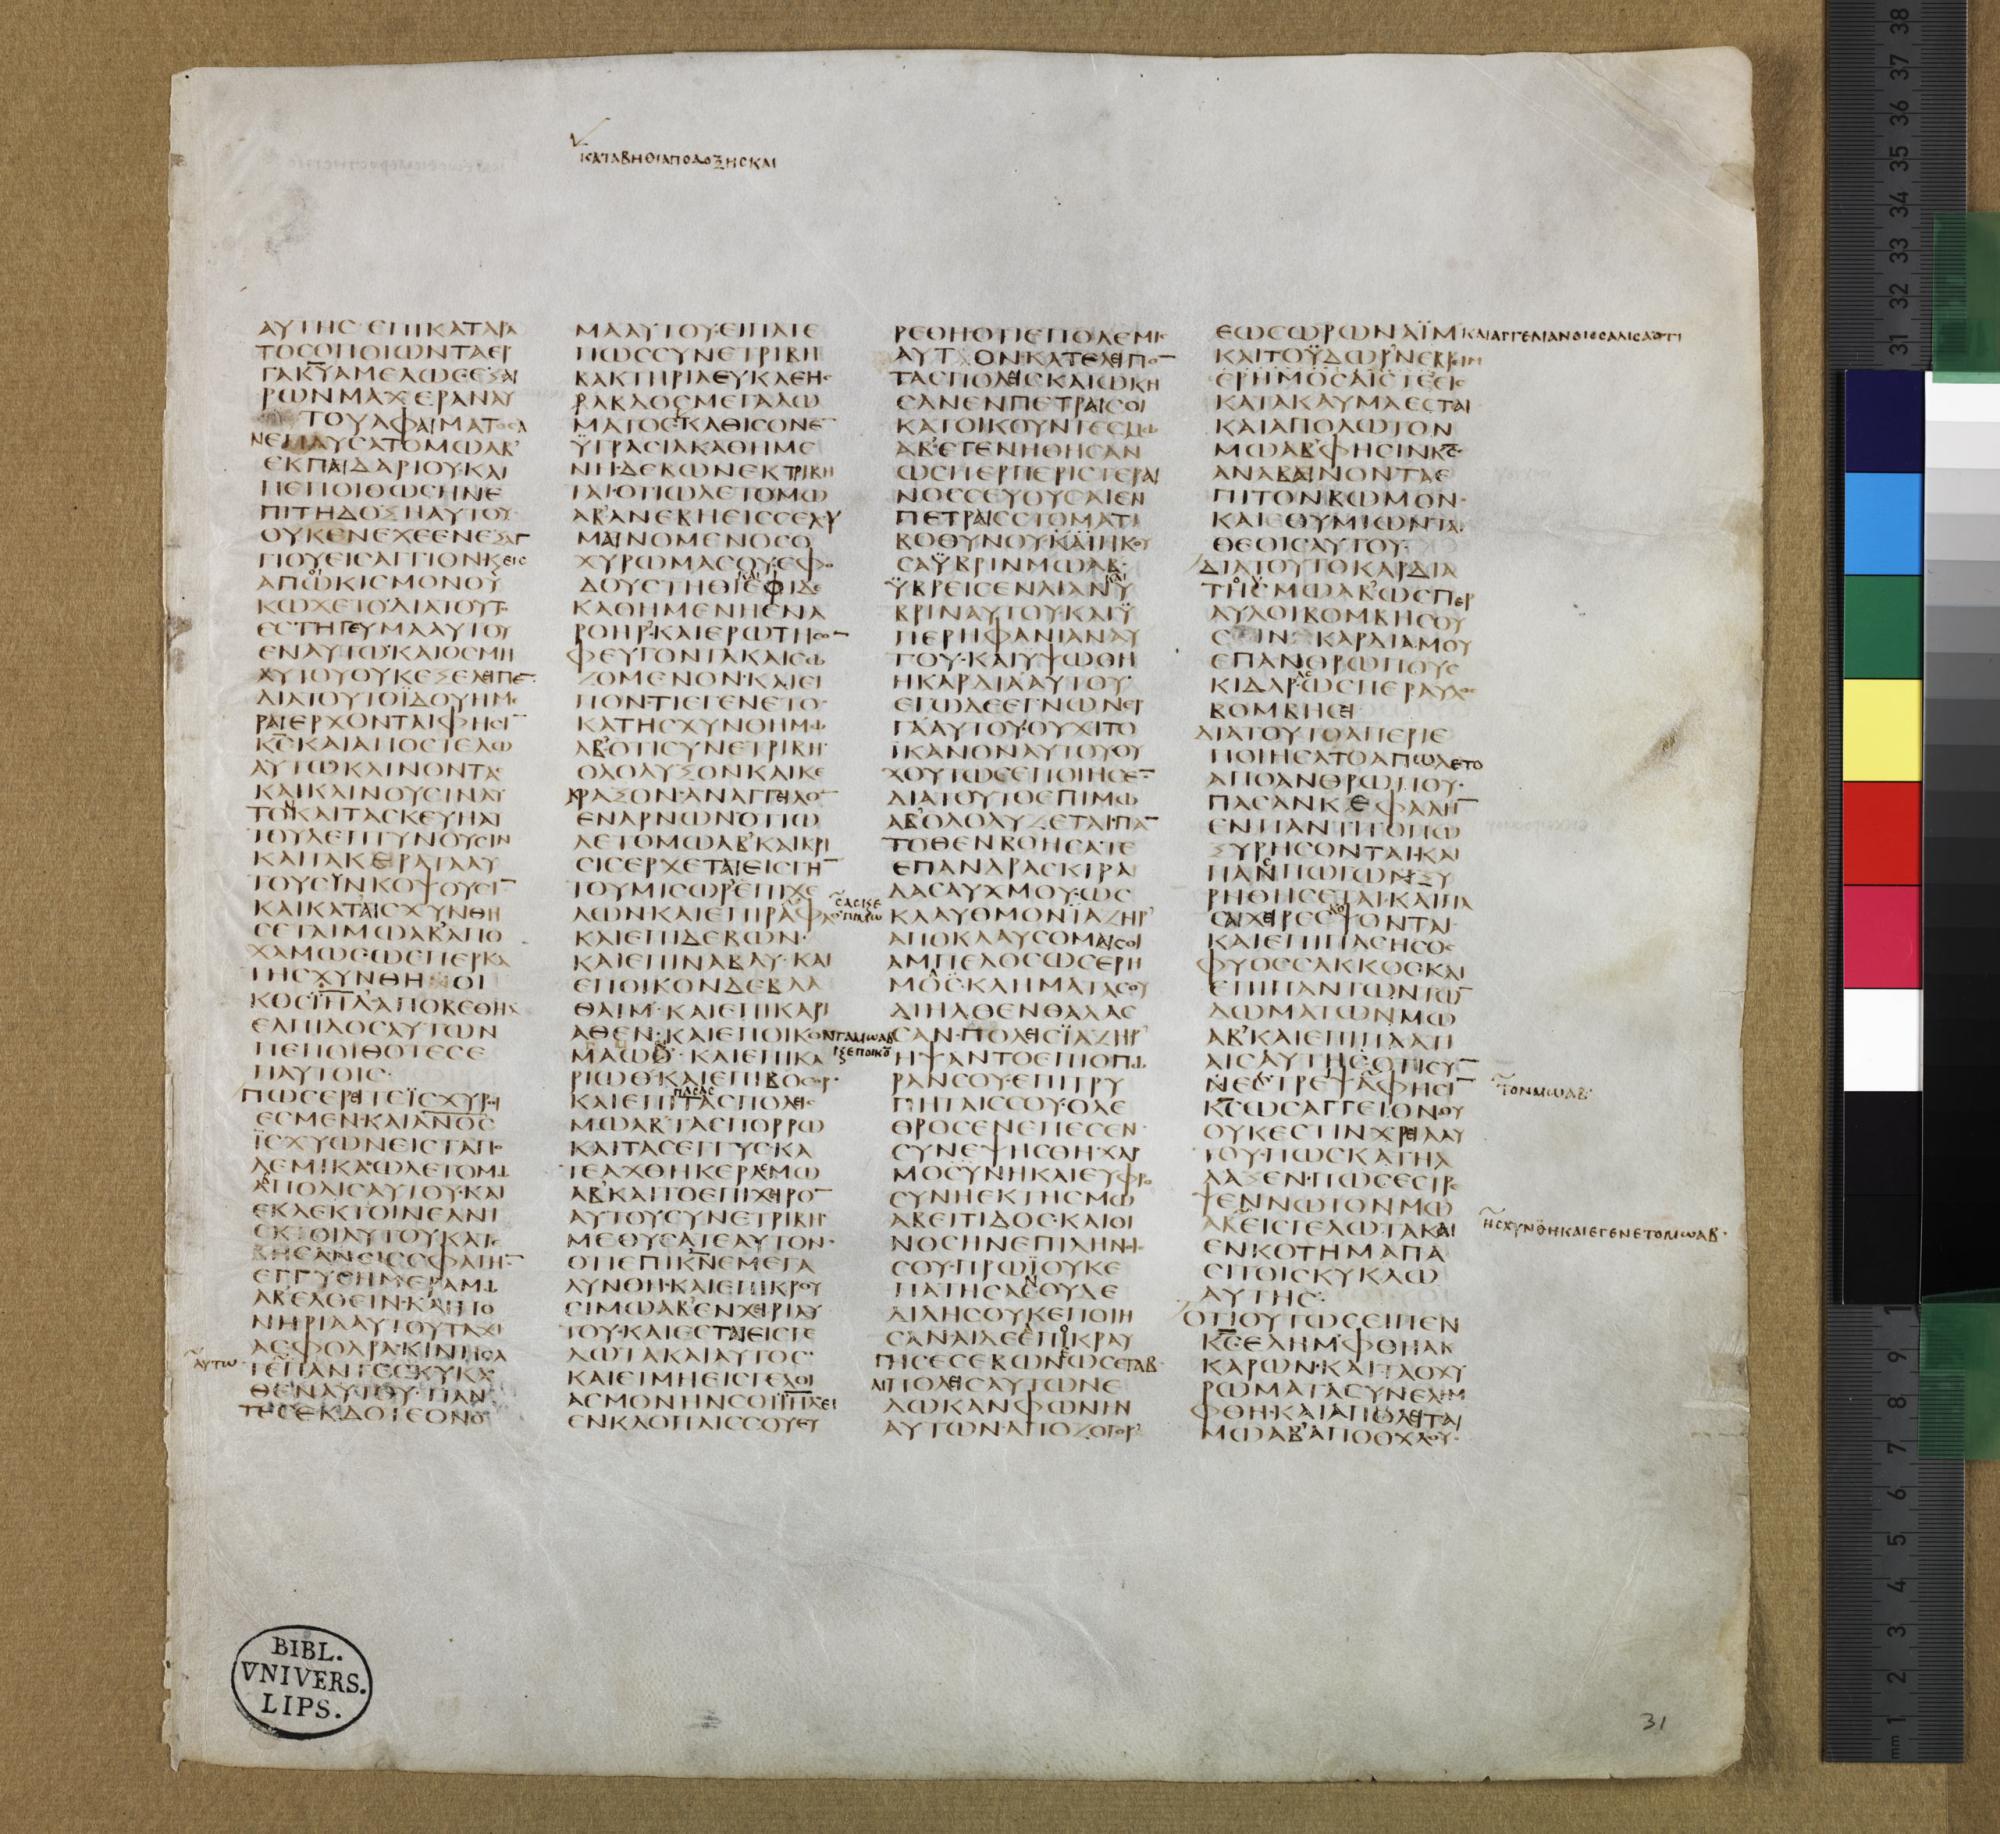 ΚΑΤΑΒΗΘΙΑΠΟΔΟΞΗϹΚΑΙ
ΑΥΤΗϹ ΕΠΙΚΑΤΑΡΑ
ΤΟϹΟΠΟΙΩΝΤΑΕΡ
ΓΑΚΥΑΜΕΛΩϹΕΞΑΙ
ΡΩΝΜΑΧΕΡΑΝΑΥ
ΤΟΥΑΦΑΙΜΑΤΟϹΑ
ΝΕΠΑΥϹΑΤΟΜΩΑΒ
ΕΚΠΑΙΔΑΡΙΟΥ·ΚΑΙ
ΠΕΠΟΙΘΩϹΗΝΕ
ΠΙΤΗΔΟΞΗΑΥΤΟΥ·
ΟΥΚΕΝΕΧΕΕΝΕΞΑΓ
ΓΙΟΥΕΙϹΑΓΓΙΟΝΚϹΕΙϹ
ΑΠΩΚΙϹΜΟΝΟΥ
ΚΩΧΕΤΟΔΙΑΤΟΥΤ
ΕϹΤΗΓΕΥΜΑΑΥΤΟΥ
ΕΝΑΥΤΩ·ΚΑΙΟϹΜΗ
ΑΥΤΟΥΟΥΚΕΞΕΛΕΙΠΕ
ΔΙΑΤΟΥΤΟΪΔΟΥΗΜΕ
ΡΑΙΕΡΧΟΝΤΑΙΦΗϹΙ
ΚϹΚΑΙΑΠΟϹΤΕΛΩ
ΑΥΤΩΚΛΙΝΟΝΤΑϹ
ΚΑΙΚΛΙΝΟΥϹΙΝΑΥ
ΤΟΝΚΑΙΤΑϹΚΕΥΗΑΥ
ΤΟΥΛΕΠΤΥΝΟΥϹΙΝ
ΚΑΙΤΑΚΕΡΑΤΑΑΥ
ΤΟΥϹΥΝΚΟΨΟΥϹΙ
ΚΑΙΚΑΤΑΙϹΧΥΝΘΗ
ϹΕΤΑΙΜΩΑΒΑΠΟ
ΧΑΜΩϹΩϹΠΕΡΚΑ
ΤΗϹΧΥΝΘΗ ΟΙ
ΚΟϹΙΗΛ·ΑΠΟΚΕΘΗΚ
ΕΛΠΙΔΟϹΑΥΤΩΝ
ΠΕΠΟΙΘΟΤΕϹΕ
ΠΑΥΤΟΙϹ·
ΠΩϹΕΡΕΙΤΕΪϹΧΥΡΟΙ
ΕϹΜΕΝ·ΚΑΙΑΝΟϹ
ΪϹΧΥΩΝΕΙϹΤΑΠΟ
ΛΕΜΙΚΑ·ΩΛΕΤΟΜΩ
ΑΒΠΟΛΙϹΑΥΤΟΥ·ΚΑΙ
ΕΚΛΕΚΤΟΙΝΕΑΝΙ
ϹΚΟΙΑΥΤΟΥΚΑΤΕ
ΒΗϹΑΝΕΙϹϹΦΑΓΗ
ΕΓΓΥϹΗΜΕΡΑΜΩ
ΑΒΕΛΘΕΙΝ·ΚΑΙΠΟ
ΝΗΡΙΑΑΥΤΟΥΤΑΧΙ
ΑϹΦΟΔΡΑ·ΚΙΝΗϹΑ
ΑΥΤΩ
ΤΕΠΑΝΤΕϹΚΥΚΛΟ
ΘΕΝΑΥΤΟΥ·ΠΑΝ
ΤΕϹΕΚΔΟΤΕΟΝΟ
ΜΑΑΥΤΟΥ·ΕΙΠΑΤΕ
ΠΩϹϹΥΝΕΤΡΙΒΗ
ΒΑΚΤΗΡΙΑΕΥΚΛΕΗϹ
ΡΑΒΔΟϹΜΕΓΑΛΩ
ΜΑΤΟϹΚΑΘΙϹΟΝΕ
ΫΓΡΑϹΙΑΚΑΘΗΜΕ
ΝΗ·ΔΕΒΩΝΕΚΤΡΙΒΗ
ΤΑΙ·ΟΤΙΩΛΕΤΟΜΩ
ΑΒ·ΑΝΕΒΗΕΙϹϹΕΛΥ
ΜΑΙΝΟΜΕΝΟϹΟ
ΧΥΡΩΜΑϹΟΥ·ΕΦΟ
ΔΟΥϹΤΗΘΙΕΦΙΔΕ
ΚΑΘΗΜΕΝΗΕΝΑ
ΡΟΗΡ·ΚΑΙΕΡΩΤΗϹΟ
ΦΕΥΓΟΝΤΑΚΑΙϹΩ
ΖΟΜΕΝΟΝ·ΚΑΙΕΙ
ΠΟΝ·ΤΙΕΓΕΝΕΤΟ·
ΚΑΤΗϹΧΥΝΘΗΜΩ
ΑΒ·ΟΤΙϹΥΝΕΤΡΙΒΗ·
ΟΛΟΛΥΞΟΝΚΑΙΚΕ
ΚΡΑΞΟΝ·ΑΝΑΓΓΕΙΛΟ
ΕΝΑΡΝΩΝΟΤΙΩ
ΛΕΤΟΜΩΑΒ·ΚΑΙΚΡΙ
ϹΙϹΕΡΧΕΤΑΙΕΙϹΓΗ
ΤΟΥΜΙϹΩΡ·ΕΠΙΧΕ
ΛΩΝΚΑΙΕΠΙΡΑΦΑϹ
ΚΑΙΕΠΙΔΕΒΩΝ·
ΚΑΙΕΠΙΝΑΒΑΥ·ΚΑΙ
ΕΠΟΙΚΟΝΔΕΒΛΑ
ΘΑΙΜ·ΚΑΙΕΠΙΚΑΡΙ
ΑΘΕΝ·ΚΑΙΕΠΟΙΚΟ
ΜΑΩΘ·ΚΑΙΕΠΙΚΑ
ΡΙΩΘ·ΚΑΙΕΠΙΒΟϹΟΡ·
ΚΑΙΕΠΙΠΑϹΑϹΤΑϹΠΟΛΕΙϹ
ΜΩΑΒΤΑϹΠΟΡΡΩ
ΚΑΙΤΑϹΕΓΓΥϹΚΑ
ΤΕΑΧΘΗΚΕΡΑϹΜΩ
ΑΒ·ΚΑΙΤΟΕΠΙΧΕΙΡΟ
ΑΥΤΟΥϹΥΝΕΤΡΙΒΗ·
ΜΕΘΥϹΑΤΕΑΥΤΟΝ·
ΟΤΙΕΠΙΚΝΕΜΕΓΑ
ΛΥΝΘΗ·ΚΑΙΕΠΙΚΡΟΥ
ϹΙΜΩΑΒ·ΕΝΧΕΙΡΙΑΥ
ΤΟΥ·ΚΑΙΕϹΤΑΙΕΙϹΓΕ
ΛΩΤΑΚΑΙΑΥΤΟϹ·
ΚΑΙΕΙΜΗΕΙϹΓΕΛΟΙ
ΑϹΜΟΝΗΝϹΟΙΙΗΛΕΙ
ΕΝΚΛΟΠΑΙϹϹΟΥΕΥ
ΡΕΘΗΟΤΙΕΠΟΛΕΜΙϹ
ΑΥΤ ΟΝ·ΚΑΤΕΛΕΙΠΟ
ΤΑϹΠΟΛΕΙϹΚΑΙΩΚΗ
ϹΑΝΕΝΠΕΤΡΑΙϹΟΙ
ΚΑΤΟΙΚΟΥΝΤΕϹΜΩ
ΑΒ·ΕΓΕΝΗΘΗϹΑΝ
ΩϹΠΕΡΠΕΡΙϹΤΕΡΑΙ
ΝΟϹϹΕΥΟΥϹΑΙΕΝ
ΠΕΤΡΑΙϹϹΤΟΜΑΤΙ
ΒΟΘΥΝΟΥ·ΚΑΙΗΚΟΥ
ϹΑΫΒΡΙΝΜΩΑΒ·
ΫΒΡΕΙϹΕΝΛΙΑΝΫ
ΒΡΙΝΑΥΤΟΥ·ΚΑΙΫ
ΠΕΡΗΦΑΝΙΑΝΑΥ
ΤΟΥ·ΚΑΙΥΨΩΘΗ
ΗΚΑΡΔΙΑΑΥΤΟΥ·
ΕΓΩΔΕΕΓΝΩΝΕΡ
ΓΑΑΥΤΟΥ·ΟΥΧΙΤΟ
ΪΚΑΝΟΝΑΥΤΟΥΟΥ
ΧΟΥΤΩϹΕΠΟΙΗϹΕ
ΔΙΑΤΟΥΤΟΕΠΙΜΩ
ΑΒΟΛΟΛΥΖΕΤΑΙΠΑ
ΤΟΘΕΝΒΟΗϹΑΤΕ
ΕΠΑΝΔΡΑϹΚΙΡΑ
ΔΑϹΑΥΧΜΟΥ·ΩϹ
ΚΛΑΥΘΜΟΝΪΑΖΗΡ
ΑΠΟΚΛΑΥϹΟΜΑΙϹΟΙ
ΑΜΠΕΛΟϹΩϹΕΡΗ
ΜΟϹ·ΚΛΗΜΑΤΑϹΟΥ
ΔΙΗΛΘΕΝΘΑΛΑϹ
ϹΑΝ·ΠΟΛΕΙϹΪΑΖΗΡ
ΗΨΑΝΤΟΕΠΙΟΠΩ
ΡΑΝϹΟΥ·ΕΠΙΤΡΥ
ΓΗΤΑΙϹϹΟΥ·ΟΛΕ
ΘΡΟϹΕΝΕΠΕϹΕΝ·
ϹΥΝΕΨΗϹΘΗ·ΧΑΡ
ΜΟϹΥΝΗΚΑΙΕΥΦΡΟ
ϹΥΝΗΕΚΓΗϹΜΩ
ΑΒΕΙΤΙΔΟϹ·ΚΑΙΟΙ
ΝΟϹΗΝΕΠΙΛΗΝΟΙϹ
ϹΟΥ·ΠΡΩΪΟΥΚΕ
ΠΑΤΗϹΑΝΟΥΔΕ
ΔΙΛΗϹΟΥΚΕΠΟΙΗ
ϹΑΝΑΙΔΕΕΠΙΚΡΑΥ
ΓΗϹΕϹΕΒΩΝΕΩϹΕΤΑΒ·
ΑΙΠΟΛΕΙϹΑΥΤΩΝΕ
ΔΩΚΑΝΦΩΝΗΝ
ΑΥΤΩΝ·ΑΠΟΖΟΓΟΡ
ΕΩϹΩΡΩΝΑΪΜ ΚΑΙΑΓΓΕΛΙΑΝΟΙϹΣΑΛΙϹΑΟΤΙ
ΚΑΙΤΟΫΔΩΡΝΕΒΡΙΝ
ΕΡΗΜΟϹΑΙϹΤΕΕΙϹ
ΚΑΤΑΚΑΥΜΑΕϹΤΑΙ
ΚΑΙΑΠΟΛΩΤΟΝ
ΜΩΑΒ·ΦΗϹΙΝΚϹ·
ΑΝΑΒΑΙΝΟΝΤΑΕ
ΠΙΤΟΝΒΩΜΟΝ·
ΚΑΙΕΘΥΜΙΩΝΤΑ
ΘΕΟΙϹΑΥΤΟΥ·
ΔΙΑΤΟΥΤΟΚΑΡΔΙΑ
ΤΗϹΜΩΑΒΩϹΠΕΡ
ΑΥΛΟΙΒΟΜΒΗϹΟΥ
ϹΙΝ ΚΑΡΔΙΑΜΟΥ
ΕΠΑΝΘΡΩΠΟΥϹ
ΚΙΔΑΡ·ΩϹΠΕΡΑΥΛΟϹ
ΒΟΜΒΗϹΕΙ
ΔΙΑΤΟΥΤΟΑΠΕΡΙΕ
ΠΟΙΗϹΑΤΟΑΠΩΛΕΤΟ
ΑΠΟΑΝΘΡΩΠΟΥ·
ΠΑϹΑΝΚΕΦΑΛΗ
ΕΝΠΑΝΤΙΤΟΠΩ
ΞΥΡΗϹΟΝΤΑΙ·ΚΑΙ
ΠΑϹΠΩΓΩΝΞΥ
ΡΗΘΗϹΕΤΑΙ·ΚΑΙΠΑ
ϹΑΙΧΕΙΡΕϹΚΟΨΟΝΤΑΙ·
ΚΑΙΕΠΙΠΑϹΗϹΟϹ
ΦΥΟϹϹΑΚΚΟϹ·ΚΑΙ
ΕΠΙΠΑΝΤΩΝΤΩ
ΔΩΜΑΤΩΝΜΩ
ΑΒ·ΚΑΙΕΠΙΠΛΑΤΙ
ΑΙϹΑΥΤΗϹ·ΟΤΙϹΥ
ΝΕΤΡΕΨΑΦΗϹΙ
ΤΟΝΜΩΑΒ·
ΚϹΩϹΑΓΓΕΙΟΝΟΥ
ΟΥΚΕϹΤΙΝΧΡΕΙΑΑΥ
ΤΟΥ·ΠΩϹΚΑΤΗΛ
ΛΑΞΕΝ·ΠΩϹΕϹΤΡΕ
ΨΕΝΝΩΤΟΝΜΩ
ΑΒΕΙϹΓΕΛΩΤΑΚΑΙ
ΗϹΧΥΝΘΗΚΑΙΕΓΕΝΕΤΟΜΩΑΒ·
ΕΝΚΟΤΗΜΑΠΑ
ϹΙΤΟΙϹΚΥΚΛΩ
ΑΥΤΗϹ·
ΟΤΙΟΥΤΩϹΕΙΠΕΝ
ΚϹ·ΕΛΗΜΦΘΗΑΚ
ΚΑΡΩΝ·ΚΑΙΤΑΟΧΥ
ΡΩΜΑΤΑϹΥΝΕΛΗΜ
ΦΘΗ·ΚΑΙΑΠΟΛΕΙΤΑΙ
ΜΩΑΒΑΠΟΟΧΛΟΥ·
BIBL.
VNIVERS.
LIPS.
31